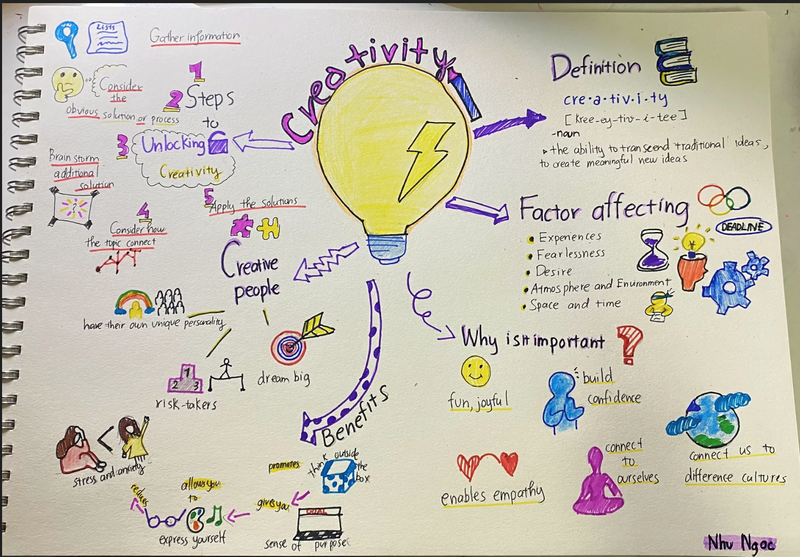 Creativity
Lists
Gather information
1
Consider
the
obvious solution or process
2 Steps
to
Unlocking
Creativity
3
Brain storm
additional
solution
4
Consider how
the topic connect
5
Apply the solutions
Definition
cre·a·tiv·i·ty
[kree-ey-tiv-i-tee]
-noun
the ability to transcend traditional ideas,
to create meaningful new ideas
Factor affecting
DEADLINE
Experences
Fearlessness
Desire
Atmosphere and Environment
Space and time
Why is it important ?
fun, joyful
build
confidence
enables empathy
connect
to
ourselves
connect us to
difference cultures
Creative
people
have their own unique personality
risk-takers
1
2
3
dream big
Benefits
promotes
think outside
the
box
gives you
GOAL
sense of purpose
allows you
to
express yourself
reduces
stress and anxiety
Nhu Ngoc